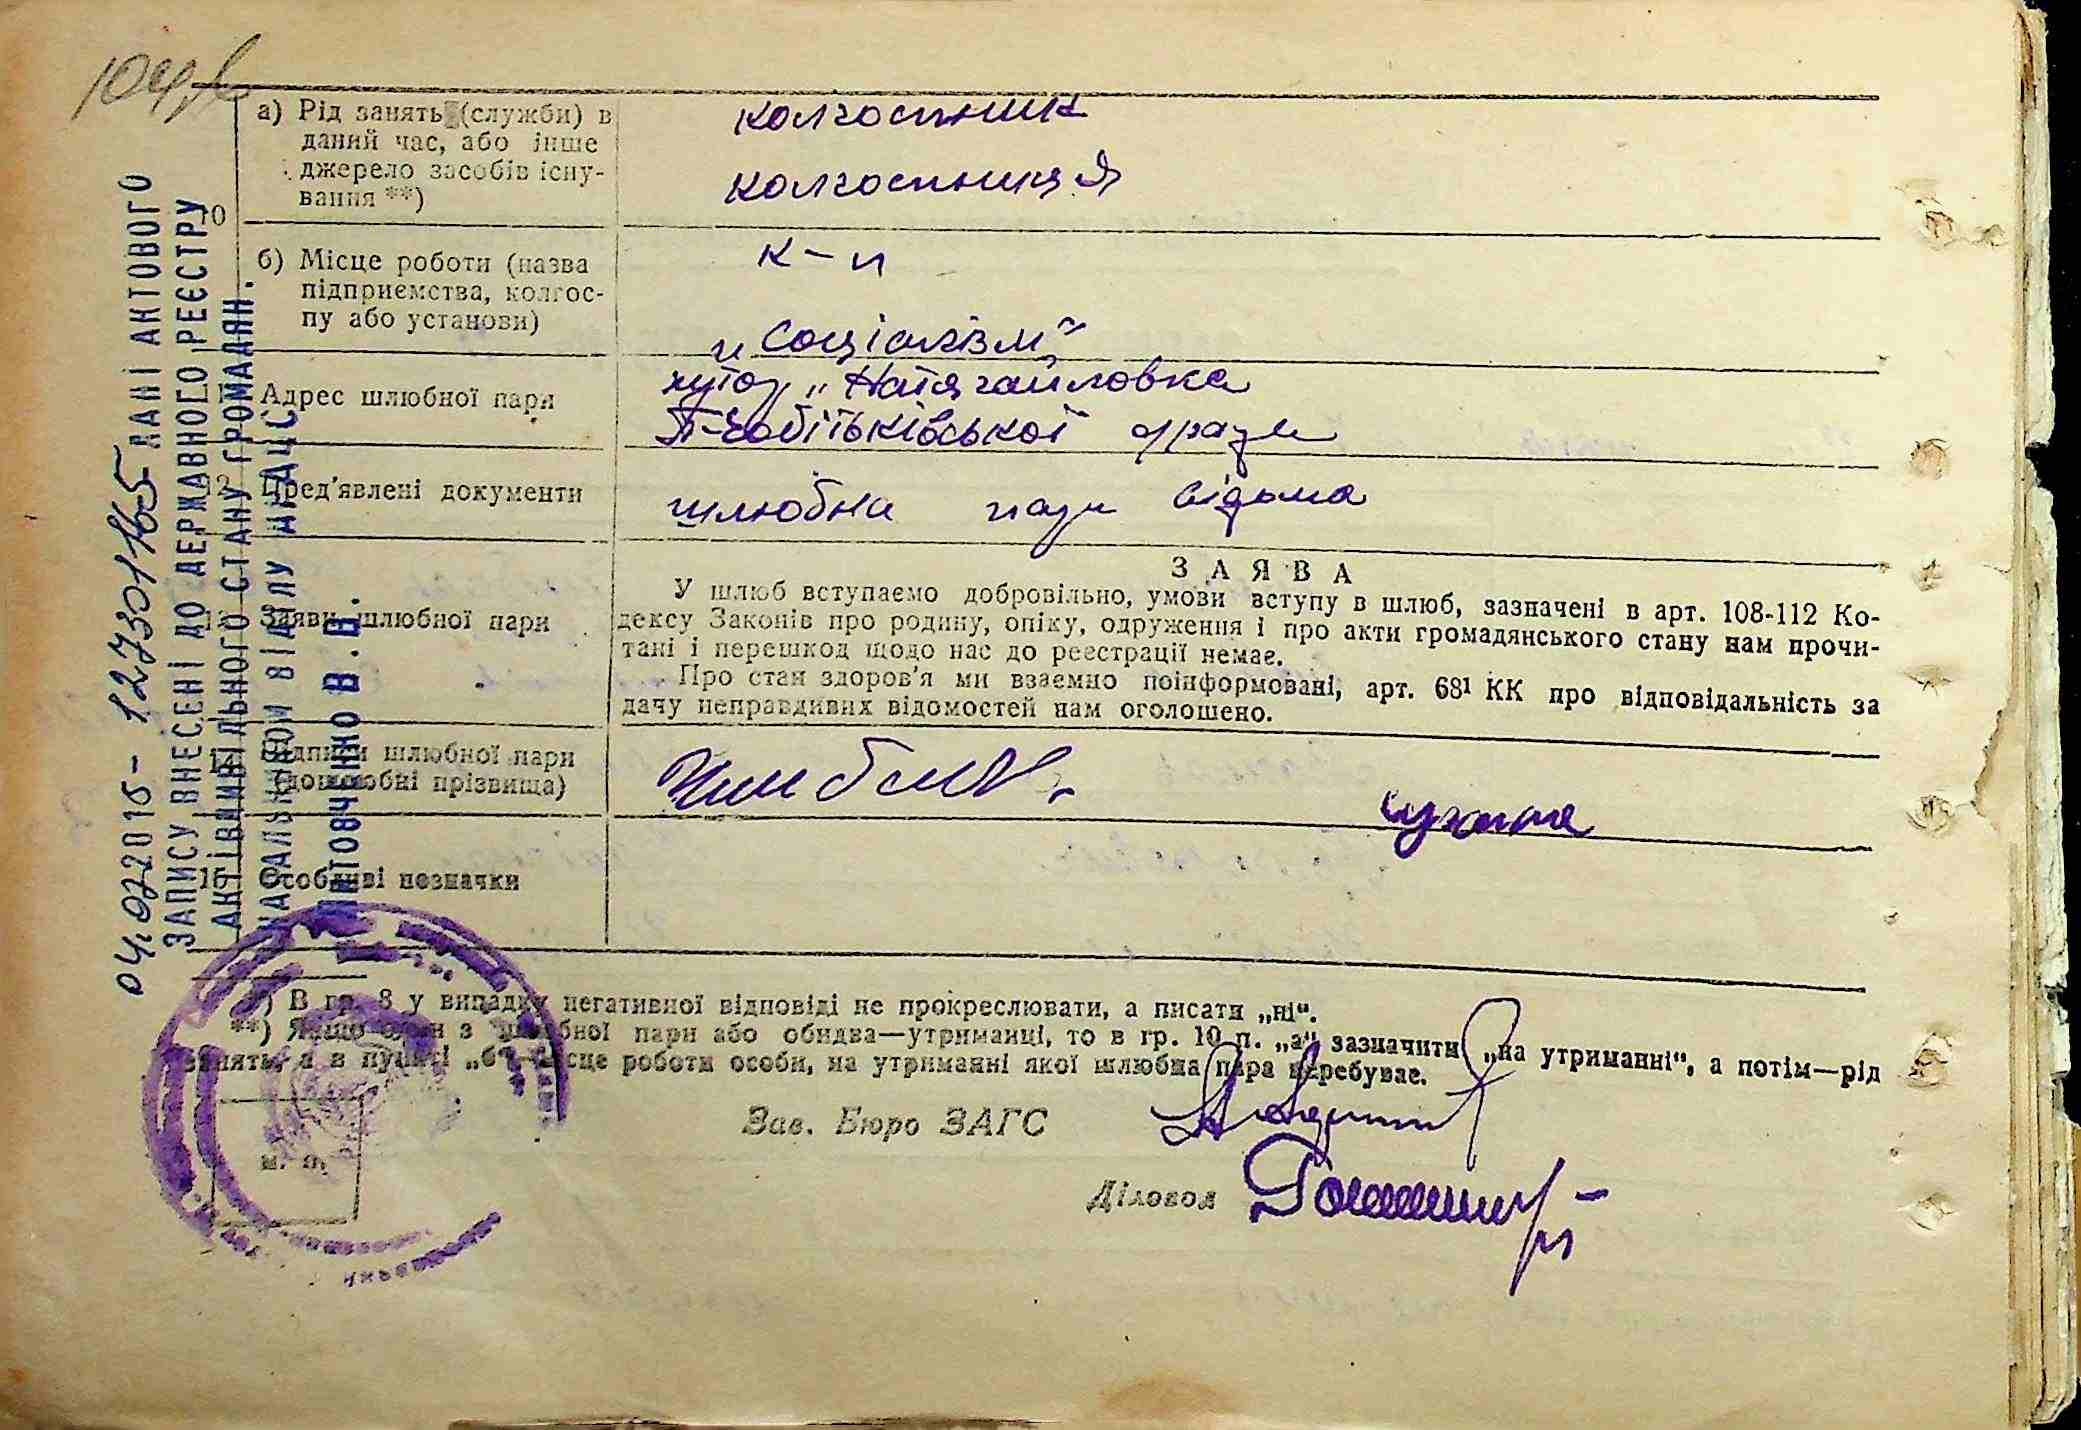 а) Рід занять (служби) в
даний час, або інше
джерело засобів існу-
вання **)
колгоспник
колгоспниця
10
б) Місце роботи (назва
підприємства, колгос-
пу або установи)
к-п
„Соціалізм“
Адрес шлюбної пари
хутор
Пред'явлені документи
шлюбна
Заяви шлюбної пари
ЗАЯВА
У шлюб вступаємо добровільно, умови вступу в шлюб, зазначені в арт. 108-112 Ко-
дексу Законів про родину, опіку, одруження і про акти громадянського стану нам прочи-
тані і перешкод щодо нас до реєстрації немає.
Про стан здоров'я ми взаємно поінформовані, арт. 68¹ КК про відповідальність за
дачу неправдивих відомостей нам оголошено.
14
Підписи шлюбної пари
(дошлюбні прізвища)
15
Особливі позначки
*) В гр. 8 у випадку негативної відповіді не прокреслювати, а писати „ні“.
**) Якщо один з шлюбної пари або обидва—утриманці, то в гр. 10 п. „а“ зазначити „на утриманні“, а потім—рід
занять, а в пункті „б“—місце роботи особи, на утриманні якої шлюбна пара перебуває.
Зав. Бюро ЗАГС
Діловод
м. п.
04.022015- 127301165 ДАНІ АКТОВОГО
ЗАПИСУ ВНЕСЕНІ ДО ДЕРЖАВНОГО РЕЄСТРУ
АКТІВ ЦИВІЛЬНОГО СТАНУ ГРОМАДЯН.
НАЧАЛЬНИКОМ ВІДДІЛУ
В.В.